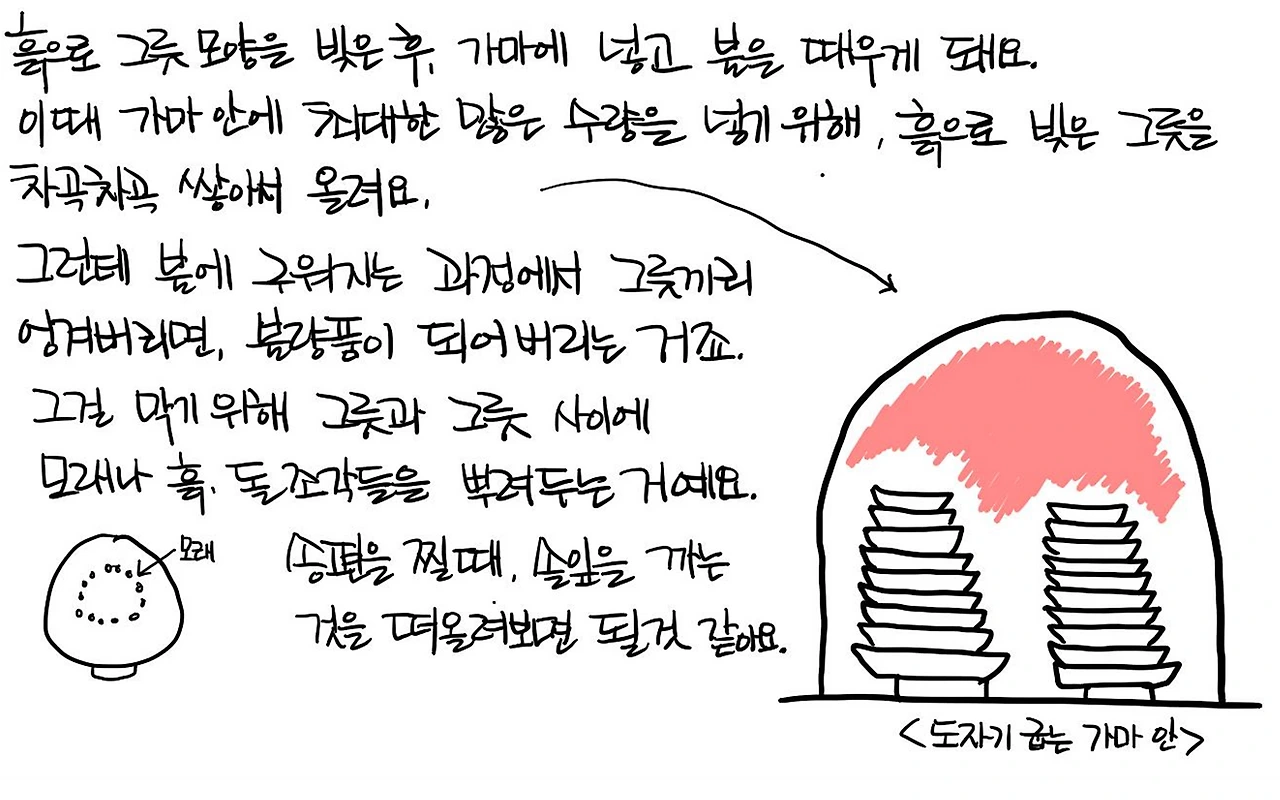 흙으로 그릇 모양을 빚은 후, 가마에 넣고 불을 때우게 돼요.
이때 가마 안에 최대한 많은 수량을 넣기 위해, 흙으로 빚은 그릇을
차곡차곡 쌓아서 올려요.
그런데 불에 구워지는 과정에서 그릇끼리
엉겨버리면, 불량품이 되어버리는 거죠.
그걸 막기 위해 그릇과 그릇 사이에
모래나 흙, 돌조각들을 뿌려두는 거예요.
모래
송편을 찔때, 솔잎을 까는
것을 떠올려보면 될것 같아요.
<도자기 굽는 가마 안>